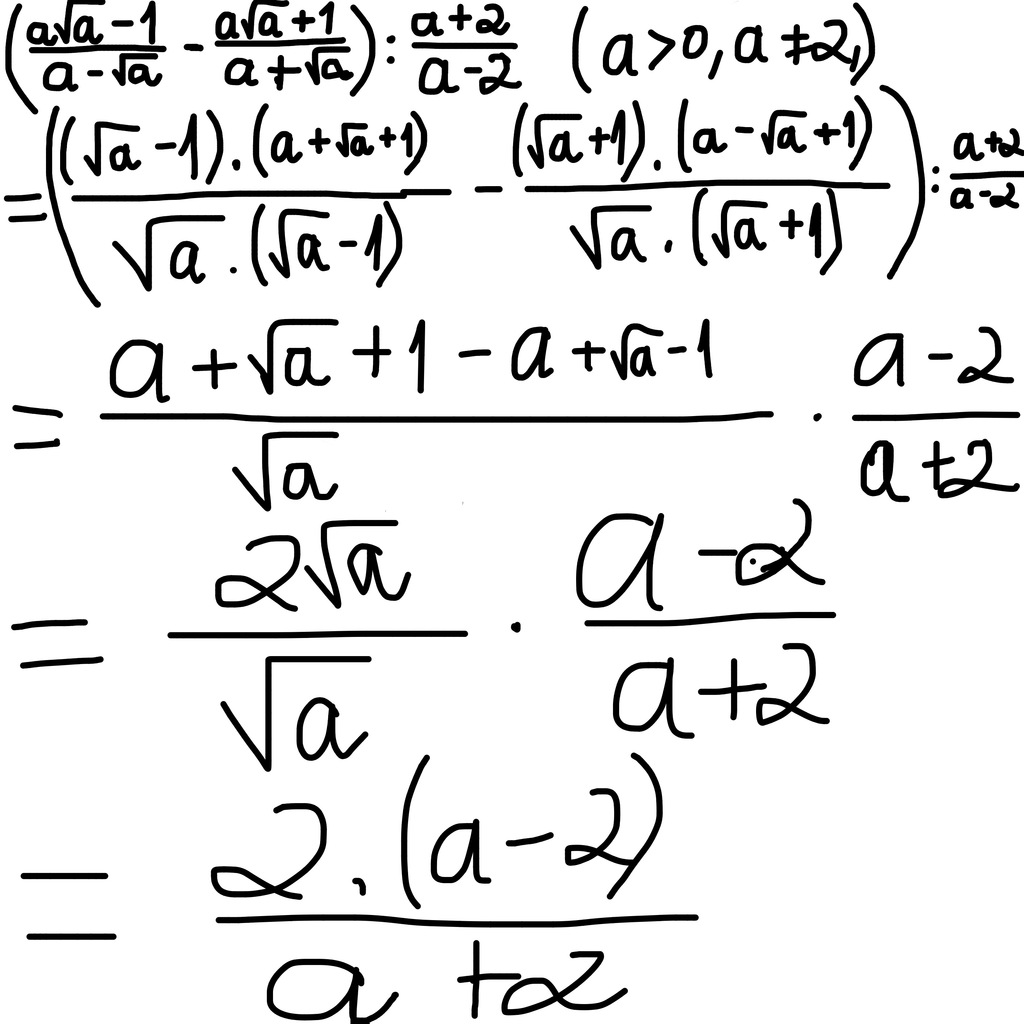 (a√a-1/a-√a - a√a+1/a+√a) : a+2/a-2 (a>0, a≠2,)
=((√a-1).(a+√a+1)/√a.(√a-1) - (√a+1).(a-√a+1)/√a.(√a+1)) : a+2/a-2
= a+√a+1-a+√a-1/√a . a-2/a+2
= 2√a/√a . a-2/a+2
= 2.(a-2)/a+2